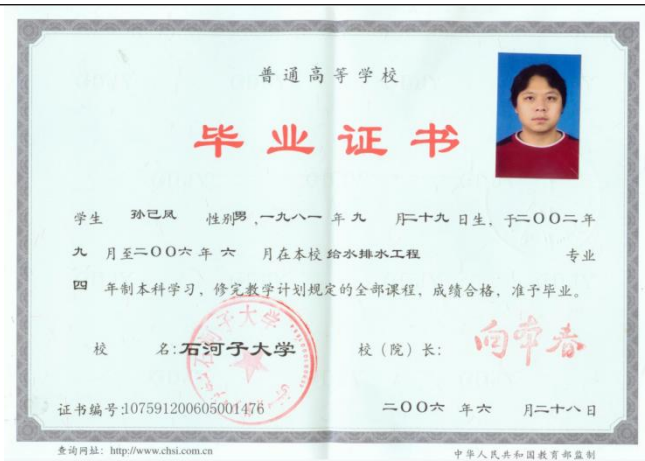 普通高等学校
毕业证书
学生 孙已凤 性别男，一九八一年九月二十九日生，于二〇〇二年
九月至二〇〇六年六月在本校给水排水工程专业
四年制本科学习，修完教学计划规定的全部课程，成绩合格，准予毕业。
校 名：石河子大学 校（院）长：向本春
石河子大学
证书编号：107591200605001476 二〇〇六年六月二十八日
查询网址：http://www.chsi.com.cn 中华人民共和国教育部监制